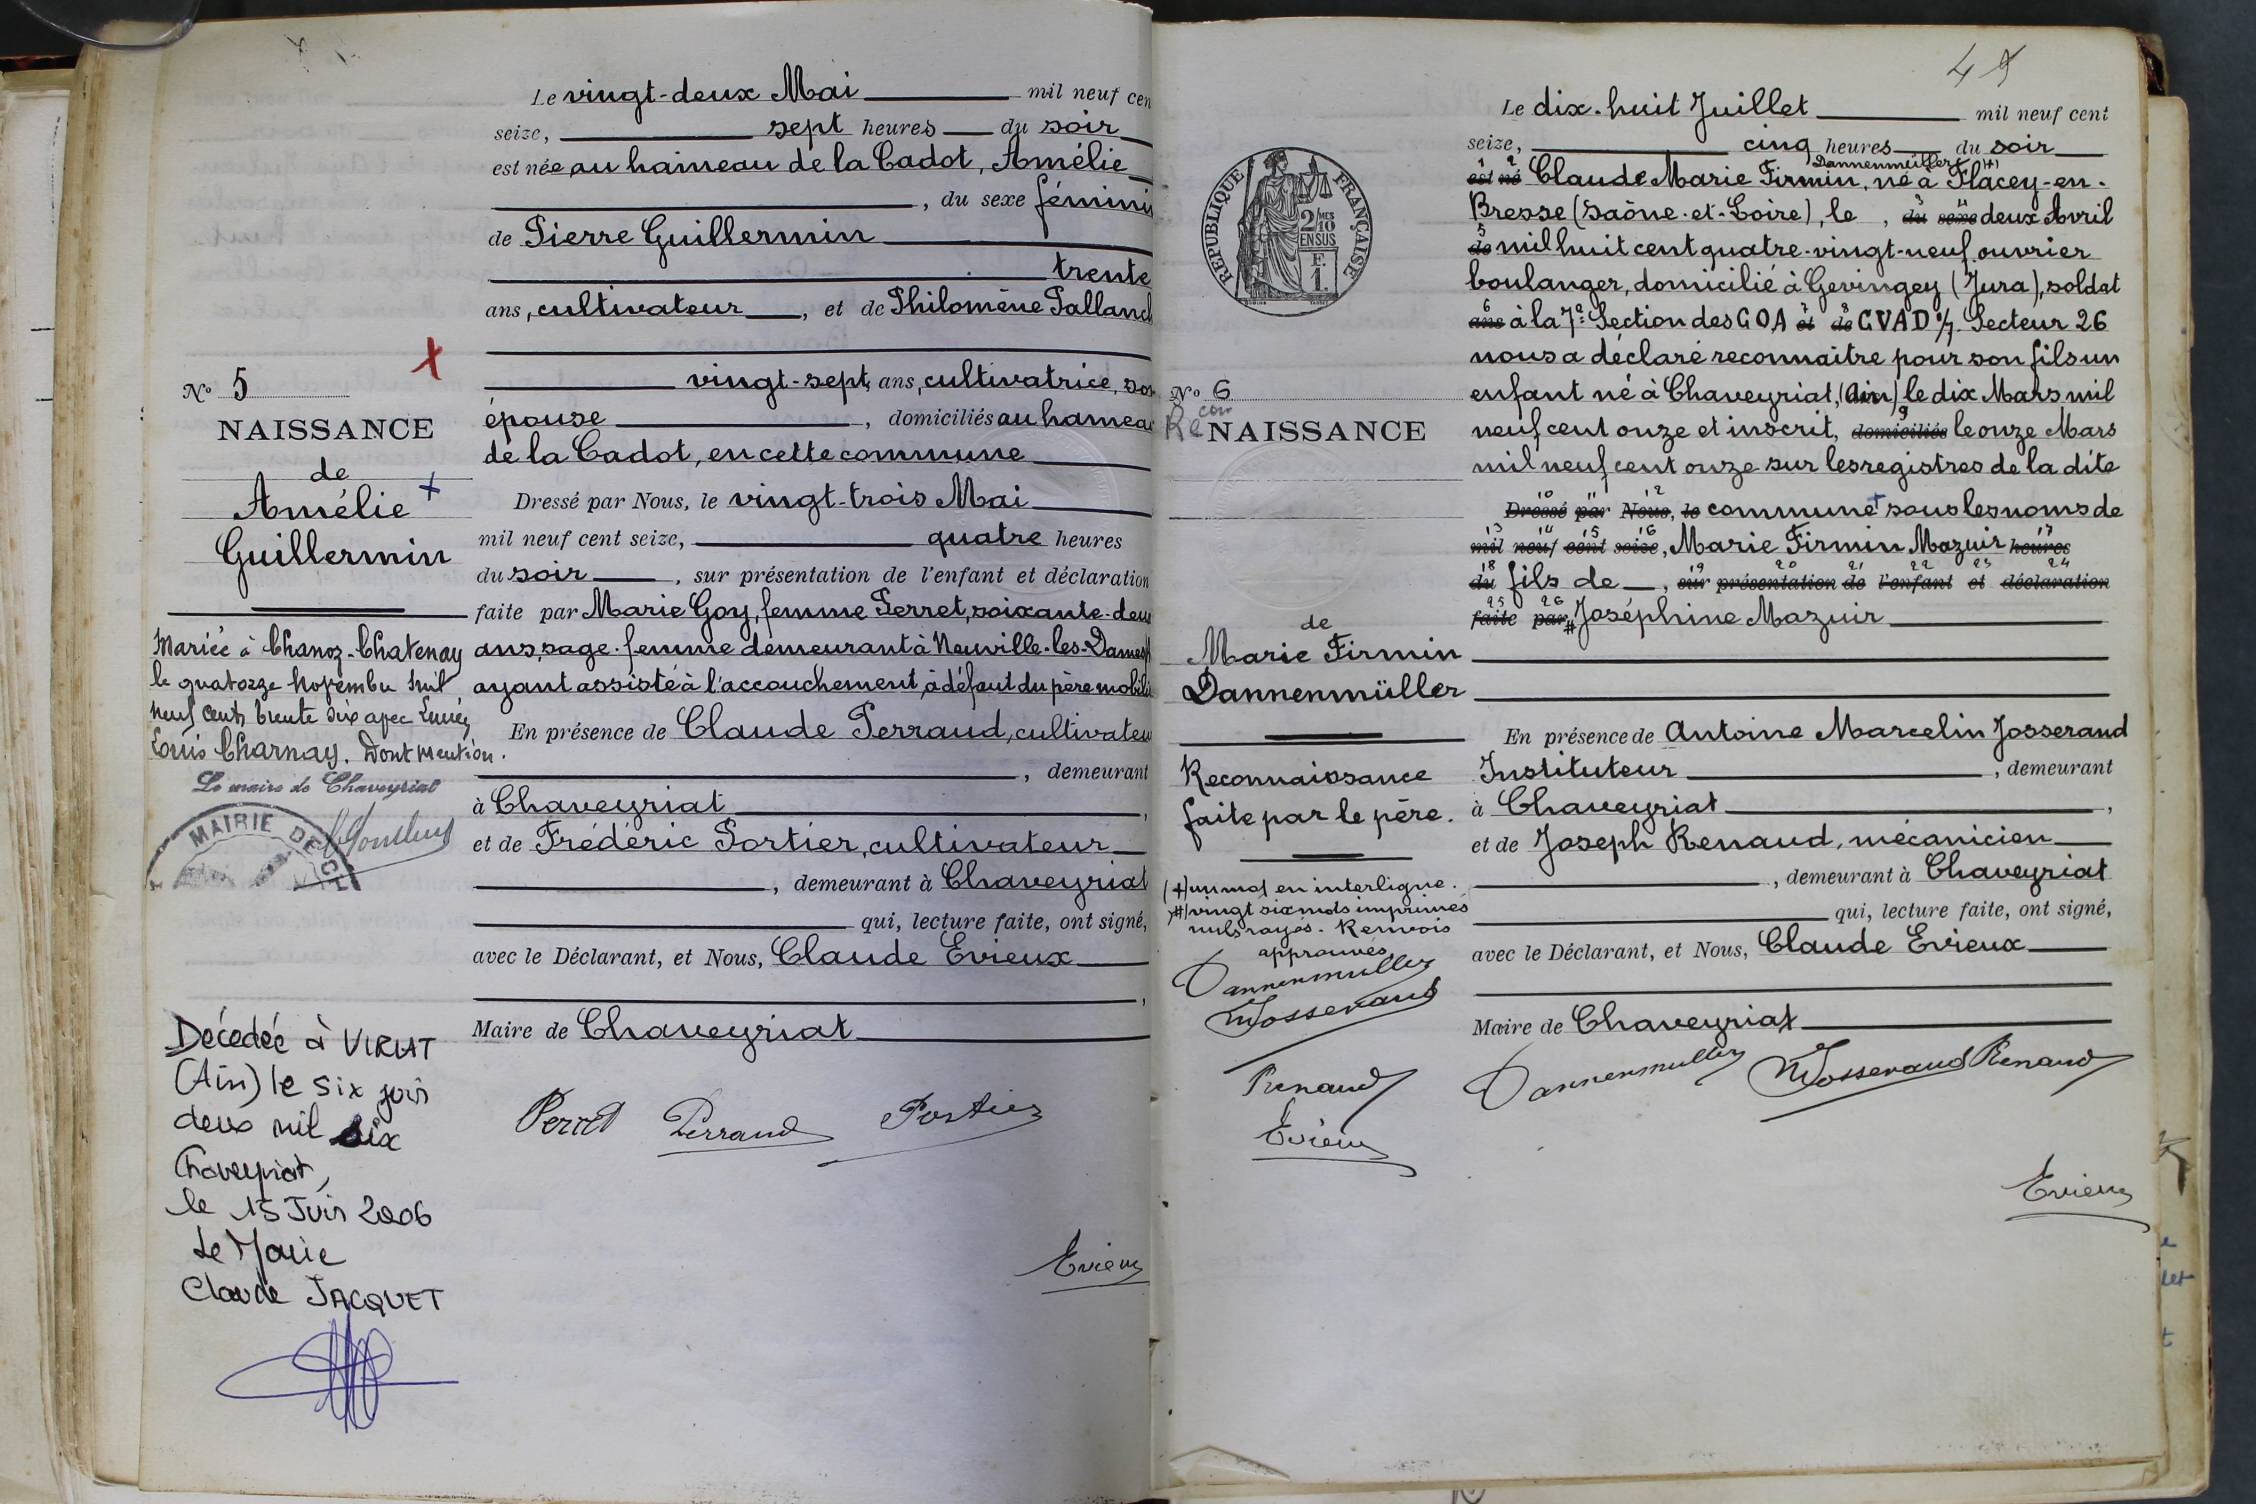 Le vingt-deux Mai mil neuf cen
seize, sept heures du soir
est née au hameau de la Cadot, Amélie
, du sexe fémini
de Pierre Guillermin
trente
ans, cultivateur, et de Philomène Palland
vingt-sept ans, cultivatrice, so
épouse, domiciliés au hamea
de la Cadot, en cette commune
Dressé par Nous, le vingt-trois Mai
mil neuf cent seize, quatre heures
du soir, sur présentation de l'enfant et déclaration
faite par Marie Goy, femme Perret, soixante-deux
ans, sage-femme demeurant à Neuville-les-Dames
ayant assisté à l'accouchement, à défaut du père mobili
En présence de Claude Perraud, cultivateu
, demeurant
à Chaveyriat,
et de Frédéric Portier, cultivateur
, demeurant à Chaveyriat
qui, lecture faite, ont signé,
avec le Déclarant, et Nous, Claude Evieux
,
Maire de Chaveyriat
Perret Perraud Portier
Evieux
No 5
NAISSANCE
de
Amélie
Guillermin
Mariée à Chanoz-Chatenay
le quatorze Novembre mil
neuf cent trente six avec Lucien
Louis Charnay. Dont mention.
Le maire de Chaveyriat
MAIRIE DE C
Décédée à VIRIAT
(Ain) le six juin
deux mil six
Chaveyriat,
le 15 Juin 2006
Le Maire
Claude JACQUET
Le dix-huit Juillet mil neuf cent
seize, cinq heures du soir
Dannenmüller (+)
1 2
est né Claude Marie Firmin, né à Flacey-en-
Bresse (Saône-et-Loire), le , du sexe deux Avril
de mil huit cent quatre-vingt-neuf ouvrier
boulanger, domicilié à Gevingey (Jura), soldat
ans à la 7e Section des COA et de CVAD %7. Secteur 26
nous a déclaré reconnaitre pour son fils un
enfant né à Chaveyriat, (Ain) le dix Mars mil
neuf cent onze et inscrit, domiciliés le onze Mars
mil neuf cent onze sur les registres de la dite
10 11 12
Dressé par Nous, le commune sous les noms de
13 14 15 16 17
mil neuf cent seize, Marie Firmin Mazuir heures
18 19 20 21 22 23 24
du fils de , sur présentation de l'enfant et déclaration
25 26
faite par # Joséphine Mazuir
En présence de Antoine Marcelin Josserand
Instituteur, demeurant
à Chaveyriat,
et de Joseph Renaud, mécanicien
, demeurant à Chaveyriat
qui, lecture faite, ont signé,
avec le Déclarant, et Nous, Claude Evieux
Maire de Chaveyriat
Dannenmuller MJosserand Renaud
Evieux
RÉPUBLIQUE FRANÇAISE
2/10 MES
EN SUS
F.
1.
No 6
Recon
NAISSANCE
de
Marie Firmin
Dannenmüller
Reconnaissance
faite par le père.
(+) un mot en interligne.
(#) vingt six mots imprimés
nuls rayés. Renvois
approuvés
Dannenmuller
MJosserand
Renaud
Evieux